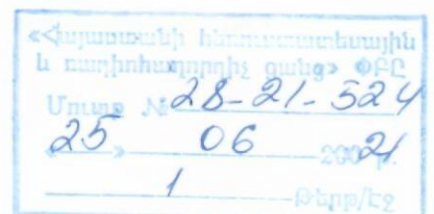 «Հայաստանի հեռուստատեսային
և ռադիոհաղորդիչ ցանց» ՓԲԸ
Մուտք № 28-21-524
«25» 06 2021 թ.
1 Թերթ/էջ